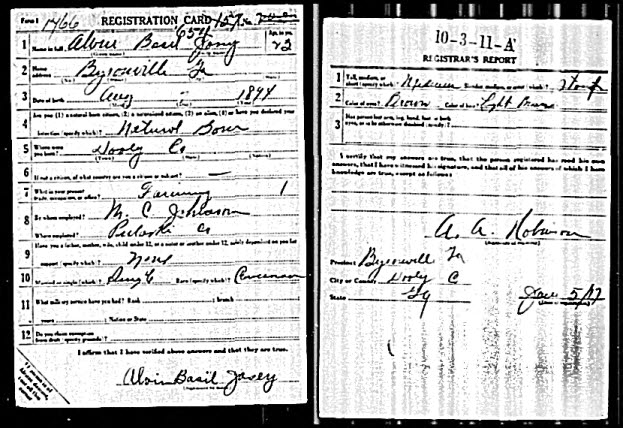 Form 1 1766 REGISTRATION CARD 157 No.
654
Age, in yrs.
1 Name in full Alvin Basil Josey 23
2 Home address Byromville Ga
3 Date of birth Aug - 1894
4 Are you (1) a natural born citizen, (2) a naturalized citizen, (3) an alien, (4) or have you declared your intention (specify which)? Natural Born
5 Where were you born? Dooly Co
(Town) (State) (Nation)
6 If not a citizen, of what country are you a citizen or subject? —
7 What is your present trade, occupation, or office? Farming 1
8 By whom employed? M. C. Johnson
Where employed? Pulaski Co
9 Have you a father, mother, wife, child under 12, or a sister or brother under 12, solely dependent on you for support (specify which)? None
10 Married or single (which)? Single Race (specify which)? Caucasian
11 What military service have you had? Rank branch
years Nation or State
12 Do you claim exemption from draft (specify grounds)?
I affirm that I have verified above answers and that they are true.
Alvin Basil Josey
10-3-11-A
REGISTRAR'S REPORT
1 Tall, medium, or short (specify which)? Medium Slender, medium, or stout (which)? Stout
2 Color of eyes? Brown Color of hair? Light Brown
3 Has person lost arm, leg, hand, foot, or both eyes, or is he otherwise disabled (specify)?
I certify that my answers are true, that the person registered has read his own answers, that I have witnessed his signature, and that all of his answers of which I have knowledge are true, except as follows:
A. A. Robinson
Precinct Byromville Ga
City or County Dooly C
State Ga June 5/17